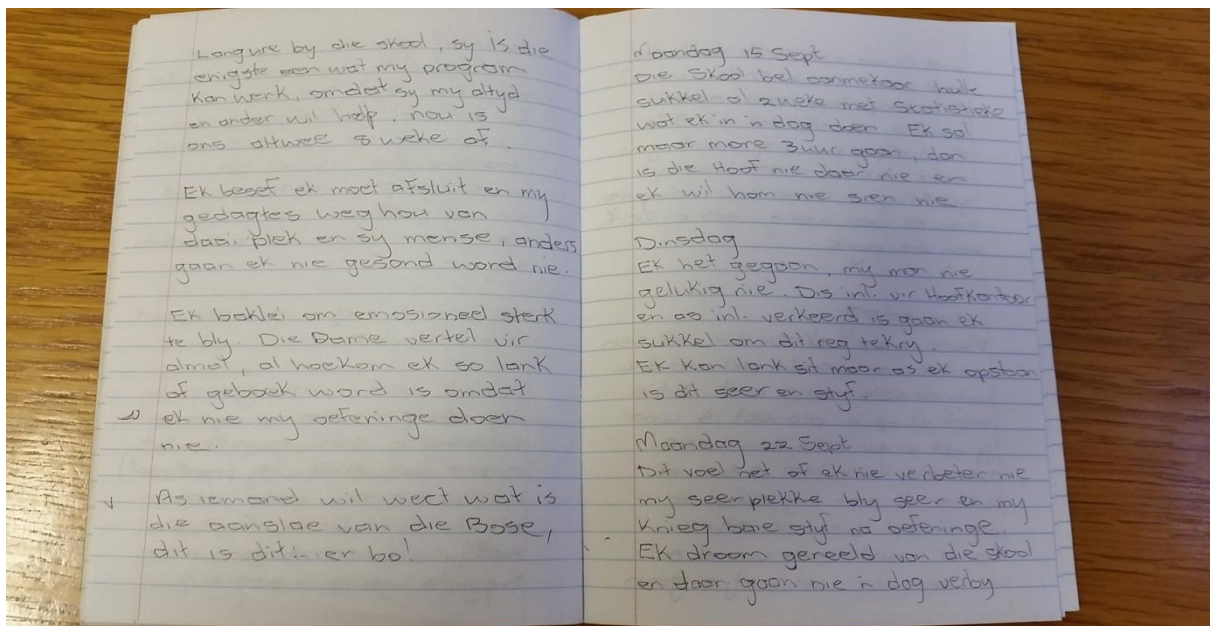 Longure by die skool, sy is die
enigste een wat my program
kan werk, omdat sy my altyd
en ander wil help. nou is
ons altwee 8 weke af.
Ek besef ek moet afsluit en my
gedagtes weg hou van
daai plek en sy mense, anders
gaan ek nie gesond word nie.
Ek baklei om emosioneel sterk
te bly. Die Dame vertel vir
almal, al hoekom ek so lank
af geboek word is omdat
ek nie my oefeninge doen
nie.
As iemand wil weet wat is
die aanslae van die Bose,
dit is dit hier bo!
Maandag 15 Sept
Die Skool bel aanmekaar hulle
sukkel al 2 weke met Statistieke
wat ek in 'n dag doen. Ek sal
maar more 3 uur gaan, dan
is die Hoof nie daar nie en
ek wil hom nie sien nie.
Dinsdag
Ek het gegaan, my man nie
gelukig nie. Dis inl. vir Hoofkantoor
en as inl. verkeerd is gaan ek
sukkel om dit reg te kry.
Ek kan lank sit maar as ek opstaan
is dit seer en styf.
Maandag 22 Sept
Dit voel net of ek nie verbeter nie
my seer plekke bly seer en my
Knieg baie styf na oefeninge.
Ek droom gereeld van die skool
en daar gaan nie 'n dag verby